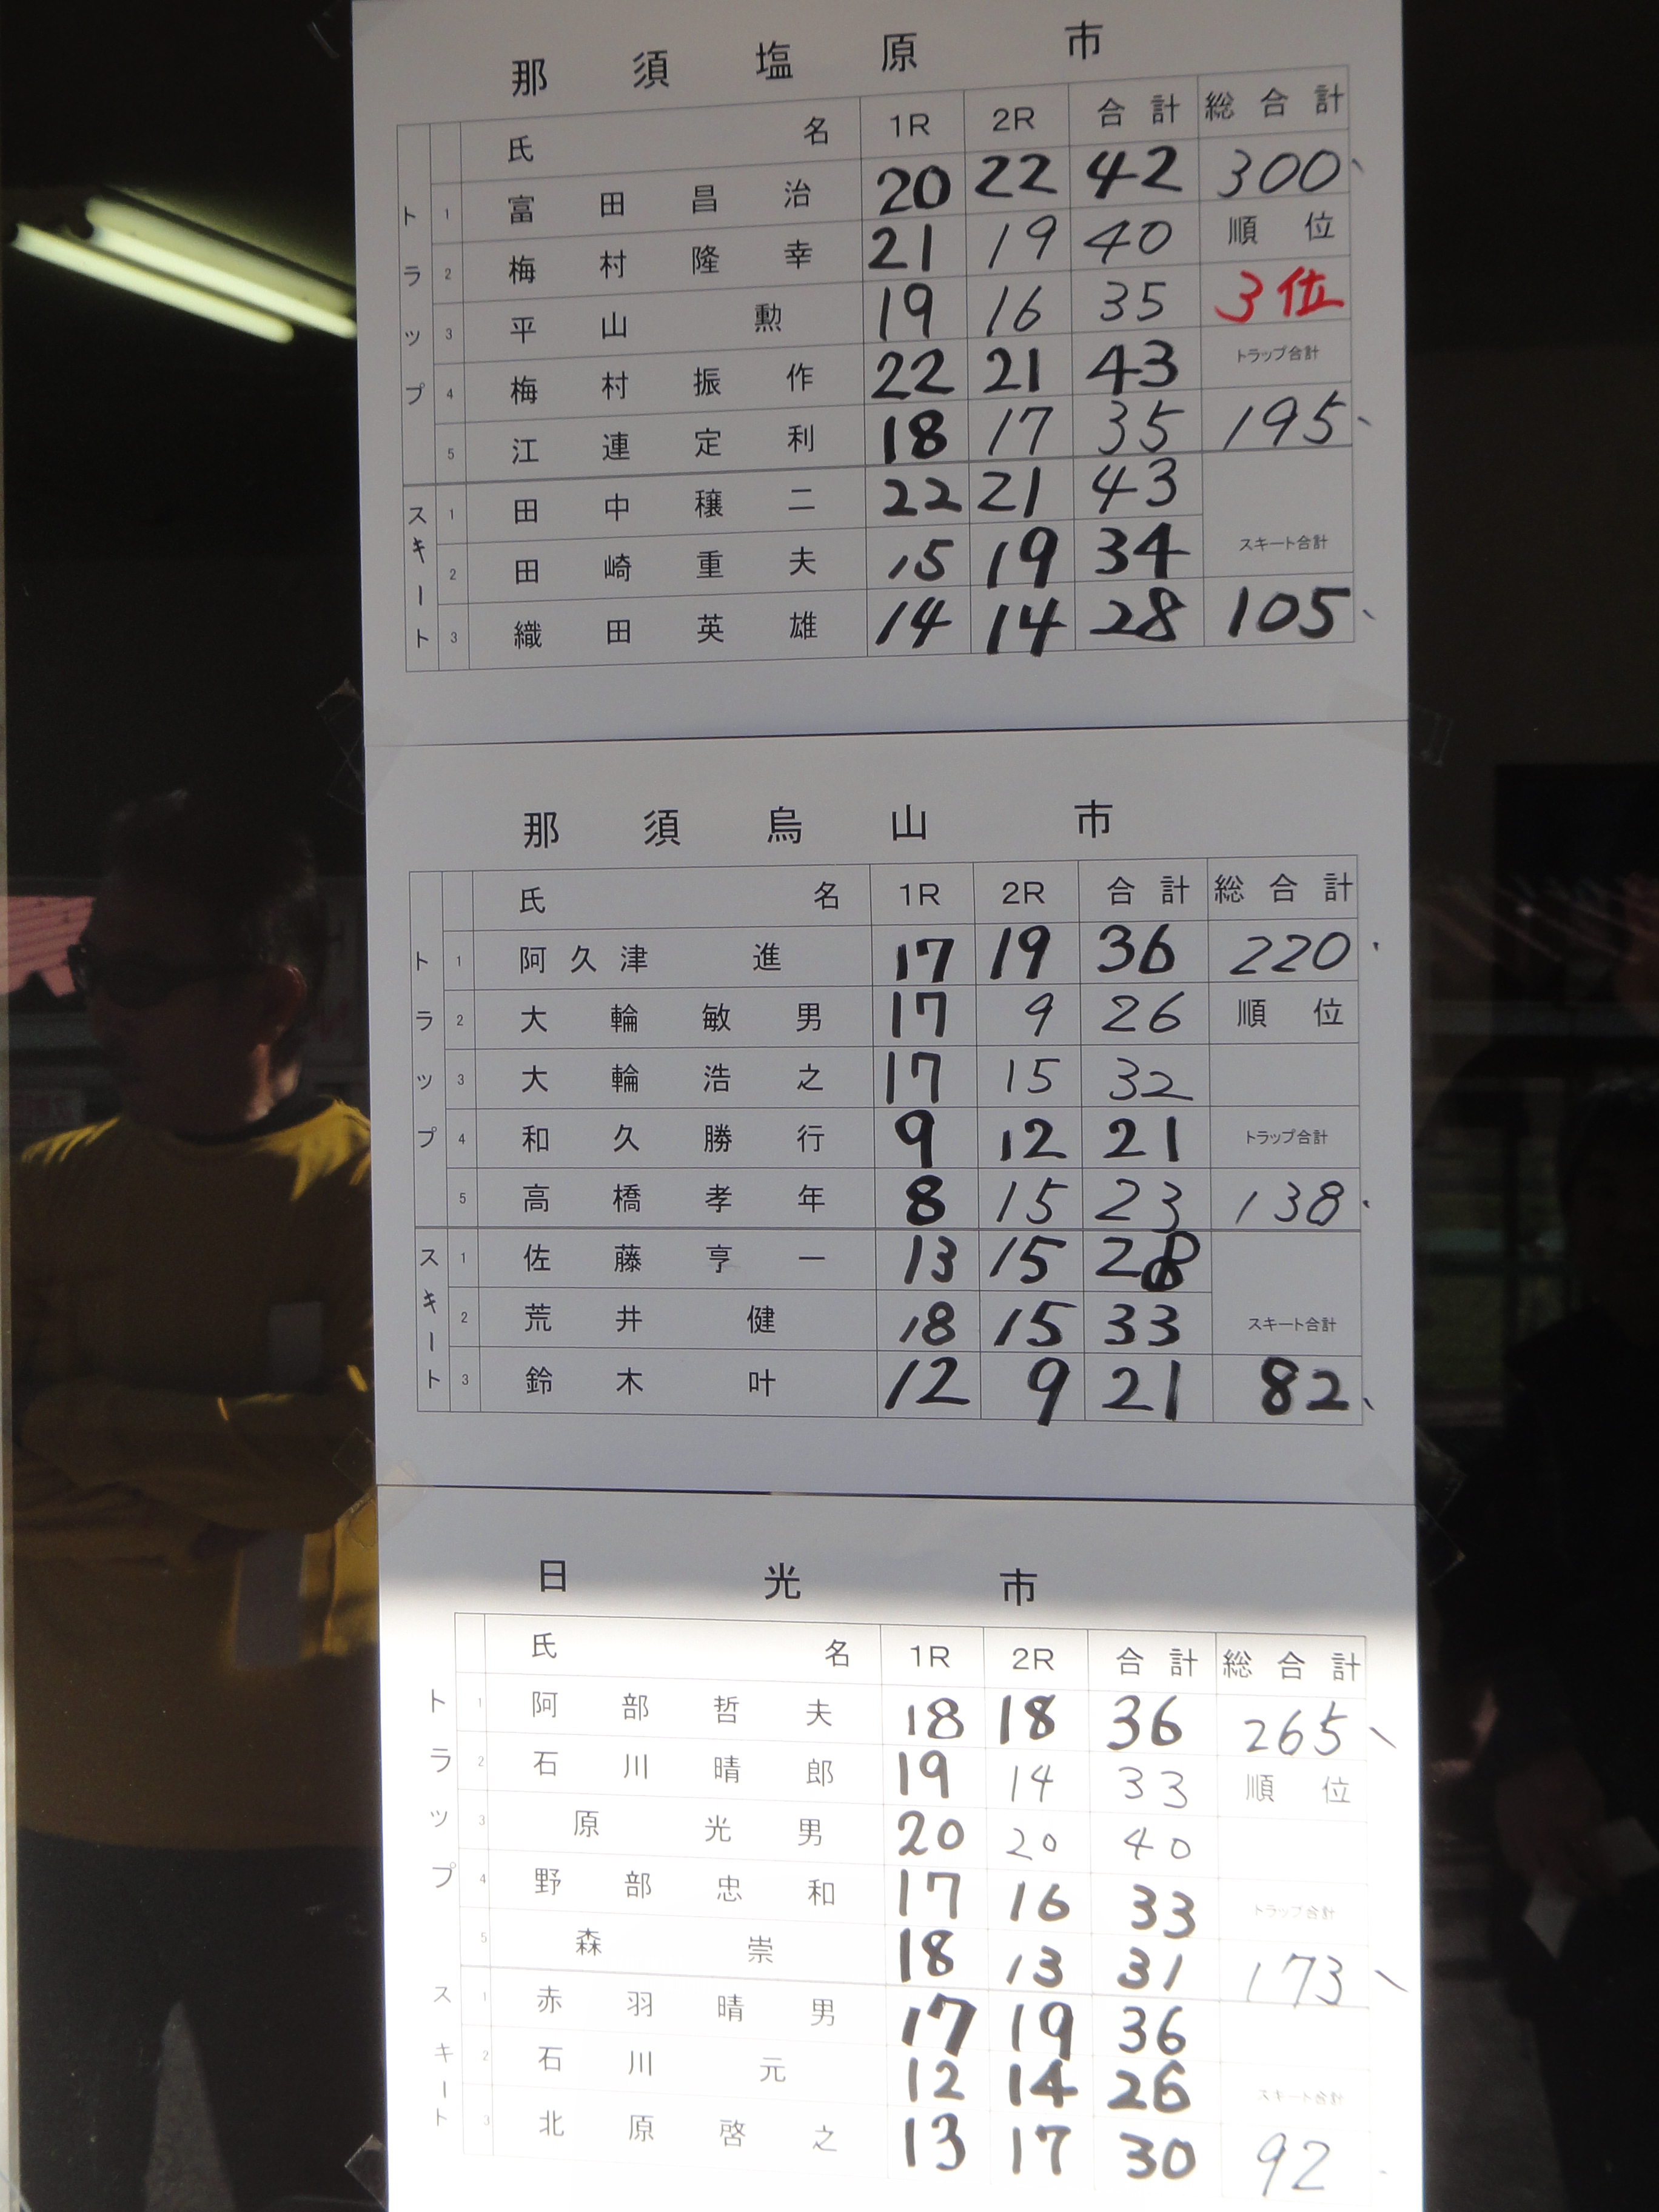 那須塩原市
氏名 1R 2R 合計 総合計
トラップ 1 富田昌治 20 22 42 300
2 梅村隆幸 21 19 40 順位
3 平山勲 19 16 35 3位
4 梅村振作 22 21 43 トラップ合計
5 江連定利 18 17 35 195
スキート 1 田中穣二 22 21 43
2 田崎重夫 15 19 34 スキート合計
3 織田英雄 14 14 28 105
那須烏山市
氏名 1R 2R 合計 総合計
トラップ 1 阿久津進 17 19 36 220
2 大輪敏男 17 9 26 順位
3 大輪浩之 17 15 32
4 和久勝行 9 12 21 トラップ合計
5 高橋孝年 8 15 23 138
スキート 1 佐藤亨一 13 15 28
2 荒井健 18 15 33 スキート合計
3 鈴木叶 12 9 21 82
日光市
氏名 1R 2R 合計 総合計
トラップ 1 阿部哲夫 18 18 36 265
2 石川晴郎 19 14 33 順位
3 原光男 20 20 40
4 野部忠和 17 16 33 トラップ合計
5 森崇 18 13 31 173
スキート 1 赤羽晴男 17 19 36
2 石川元 12 14 26 スキート合計
3 北原啓之 13 17 30 92